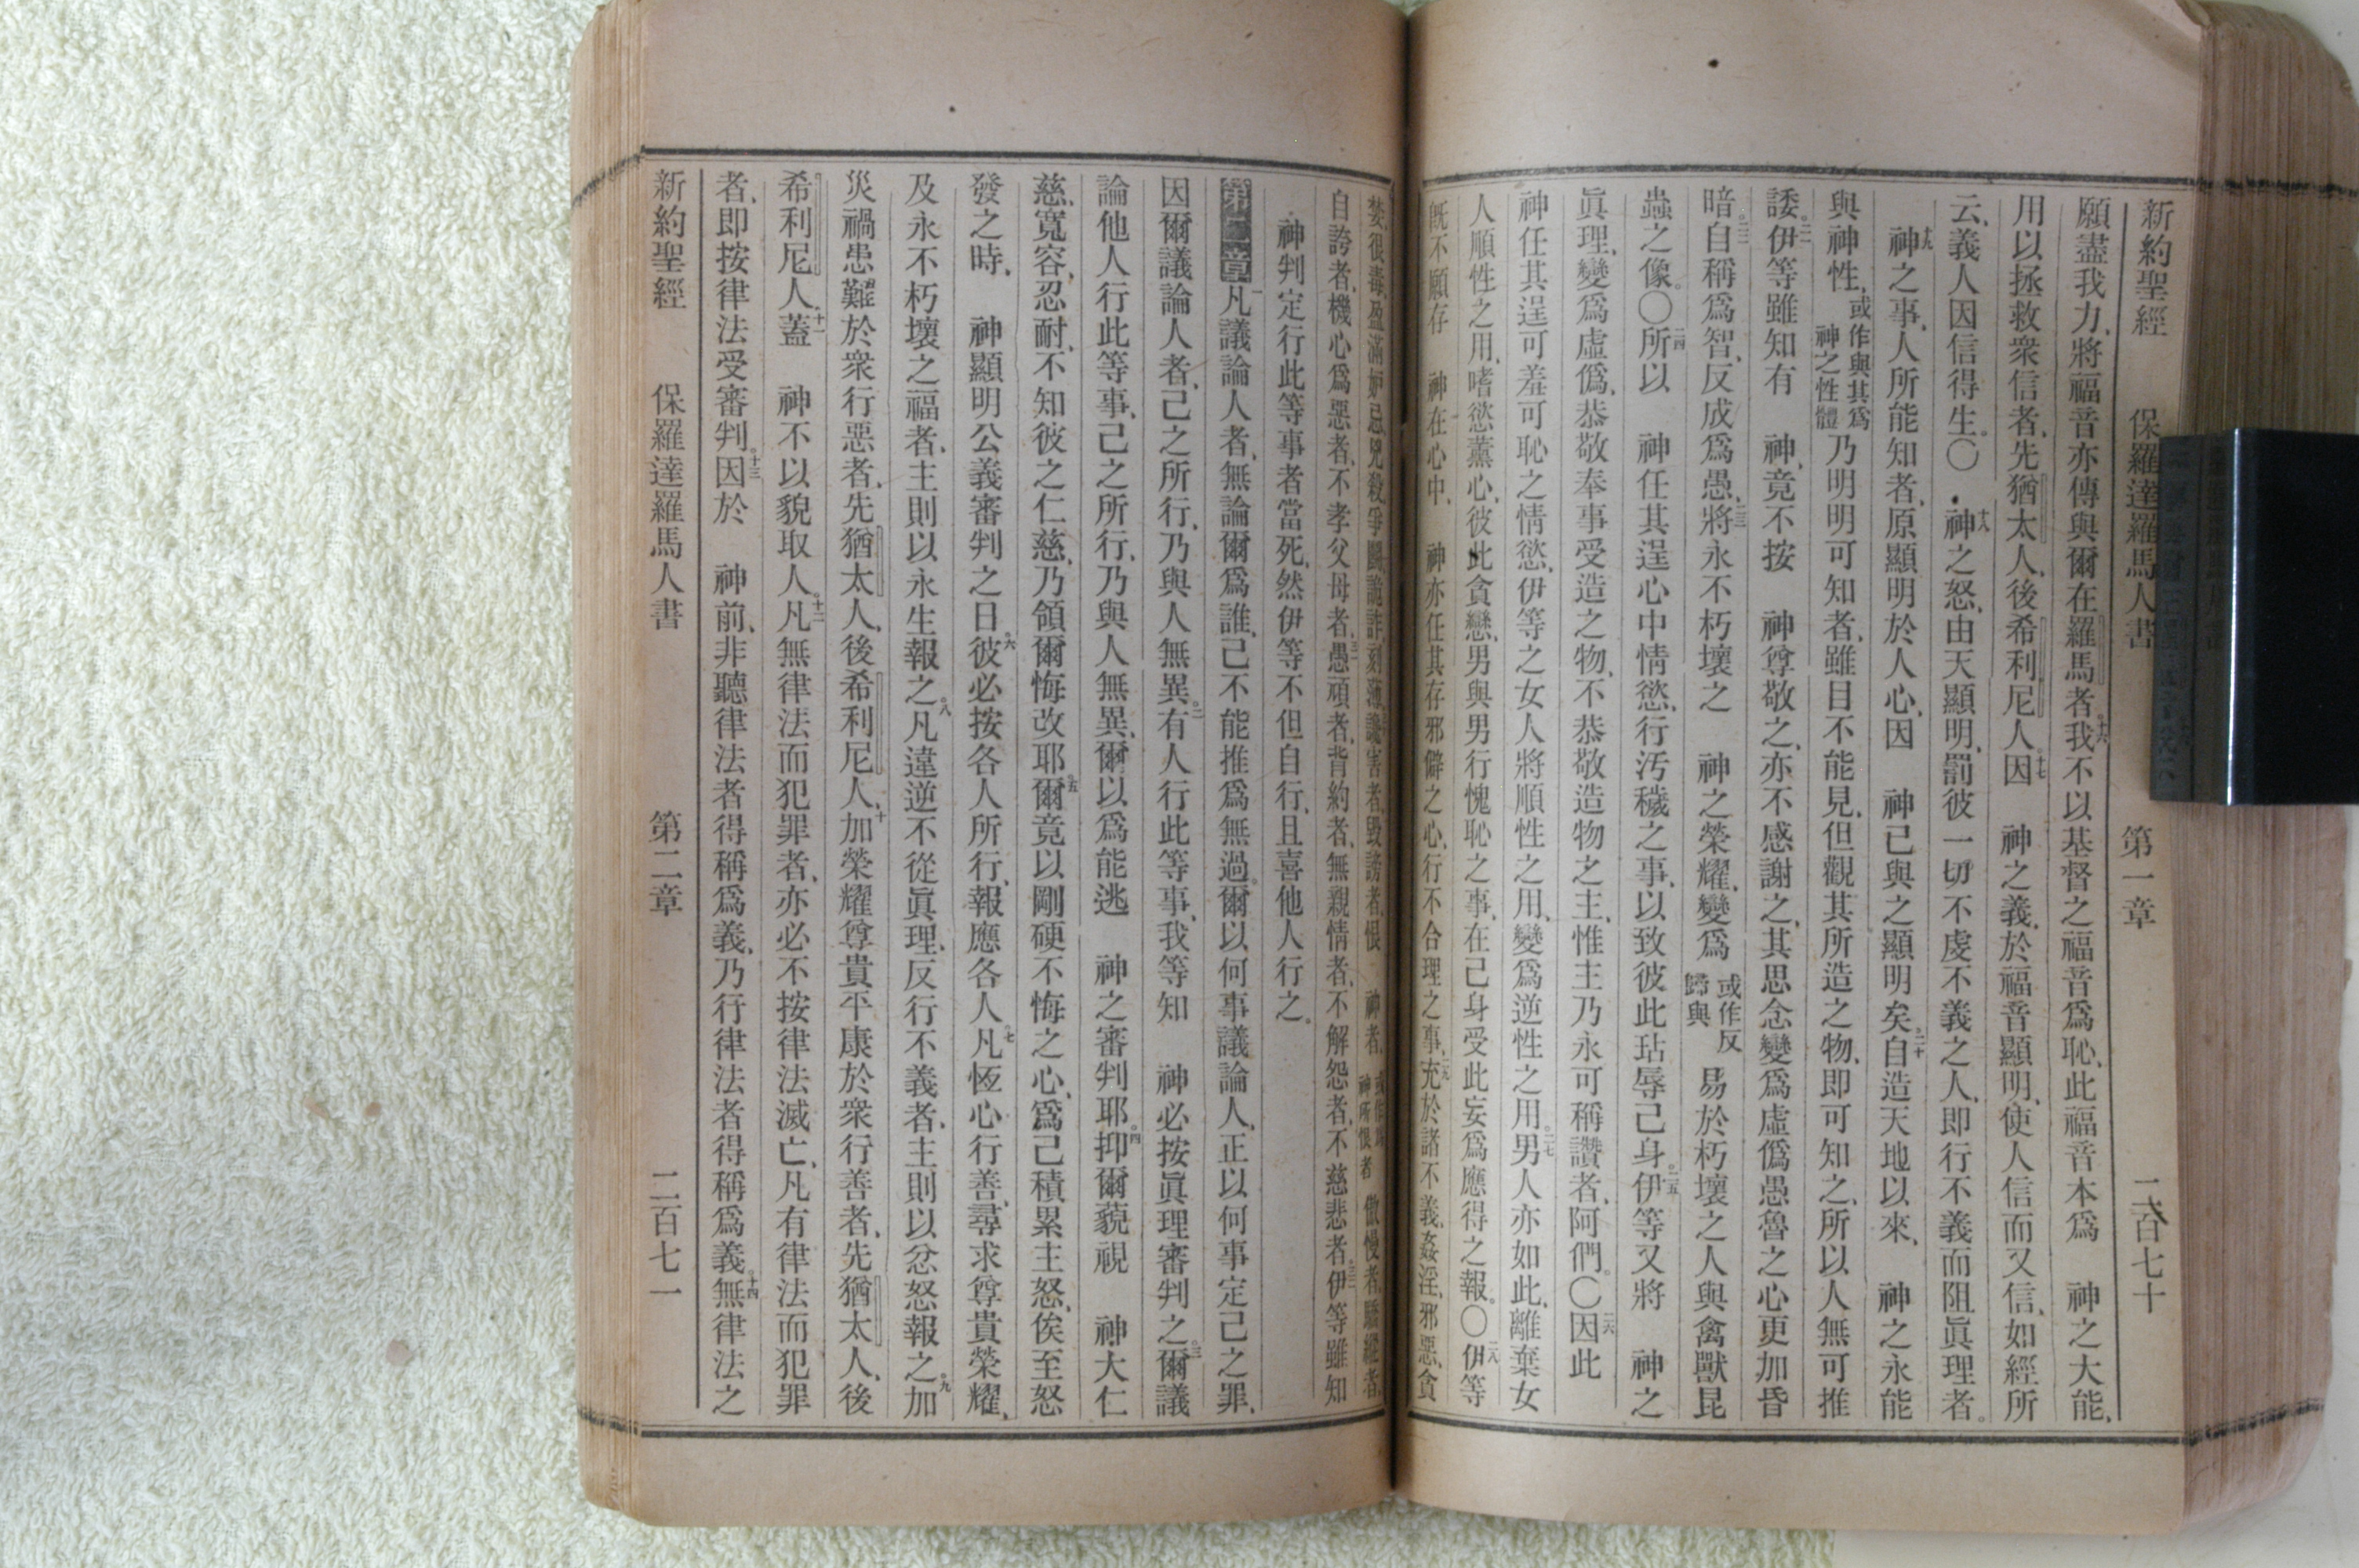 新約聖經 保羅達羅馬人書 第一章 二百七十
願盡我力、將福音亦傳與爾在羅馬者、十六我不以基督之福音爲恥、此福音本爲 神之大能、
用以拯救衆信者、先猶太人、後希利尼人。十七因 神之義、於福音顯明、使人信而又信、如經所
云、義人因信得生。〇十八神之怒、由天顯明、罰彼一切不虔不義之人、即行不義而阻眞理者。
十九神之事、人所能知者、原顯明於人心、因 神已與之顯明矣。二十自造天地以來、 神之永能
與神性、或作與其爲神之性體乃明明可知者、雖目不能見、但觀其所造之物、即可知之、所以人無可推
諉。二一伊等雖知有 神、竟不按 神尊敬之、亦不感謝之、其思念變爲虛僞、愚魯之心更加昏
暗。二二自稱爲智、反成爲愚、二三將永不朽壞之 神之榮耀、變爲或作反歸與易於朽壞之人與禽獸昆
蟲之像。〇二四所以 神任其逞心中情慾、行汚穢之事、以致彼此玷辱己身。二五伊等又將 神之
眞理、變爲虛僞、恭敬奉事受造之物、不恭敬造物之主、惟主乃永可稱讚者、阿們。〇二六因此
神任其逞可羞可恥之情慾、伊等之女人將順性之用、變爲逆性之用。二七男人亦如此、離棄女
人順性之用、嗜慾薰心、彼此貪戀、男與男行愧恥之事、在己身受此妄爲應得之報。〇二八伊等
旣不願存 神在心中、 神亦任其存邪僻之心、行不合理之事、二九充於諸不義、姦淫、邪惡、貪
婪、很毒、盈滿妒忌、兇殺、爭鬬、詭詐、刻薄、讒害者、毀謗者、恨 神者、或作爲神所恨者傲慢者、驕縱者、
自誇者、機心爲惡者、不孝父母者、三一愚頑者、背約者、無親情者、不解怨者、不慈悲者。三二伊等雖知
神判定行此等事者當死、然伊等不但自行、且喜他人行之。
第二章一凡議論人者、無論爾爲誰、己不能推爲無過。爾以何事議論人、正以何事定己之罪、
因爾議論人者、己之所行、乃與人無異。二有人行此等事、我等知 神必按眞理審判之。三爾議
論他人行此等事、己之所行、乃與人無異、爾以爲能逃 神之審判耶。四抑爾藐視 神大仁
慈、寬容、忍耐、不知彼之仁慈、乃領爾悔改耶。五爾竟以剛硬不悔之心、爲己積累主怒、俟至怒
發之時、 神顯明公義審判之日。六彼必按各人所行、報應各人。七凡恆心行善、尋求尊貴榮耀、
及永不朽壞之福者、主則以永生報之。八凡違逆不從眞理、反行不義者、主則以忿怒報之。九加
災禍患難於衆行惡者、先猶太人、後希利尼人、十加榮耀尊貴平康於衆行善者、先猶太人、後
希利尼人。十一蓋 神不以貌取人。十二凡無律法而犯罪者、亦必不按律法滅亡、凡有律法而犯罪
者、即按律法受審判。十三因於 神前、非聽律法者得稱爲義、乃行律法者得稱爲義。十四無律法之
新約聖經 保羅達羅馬人書 第二章 二百七一